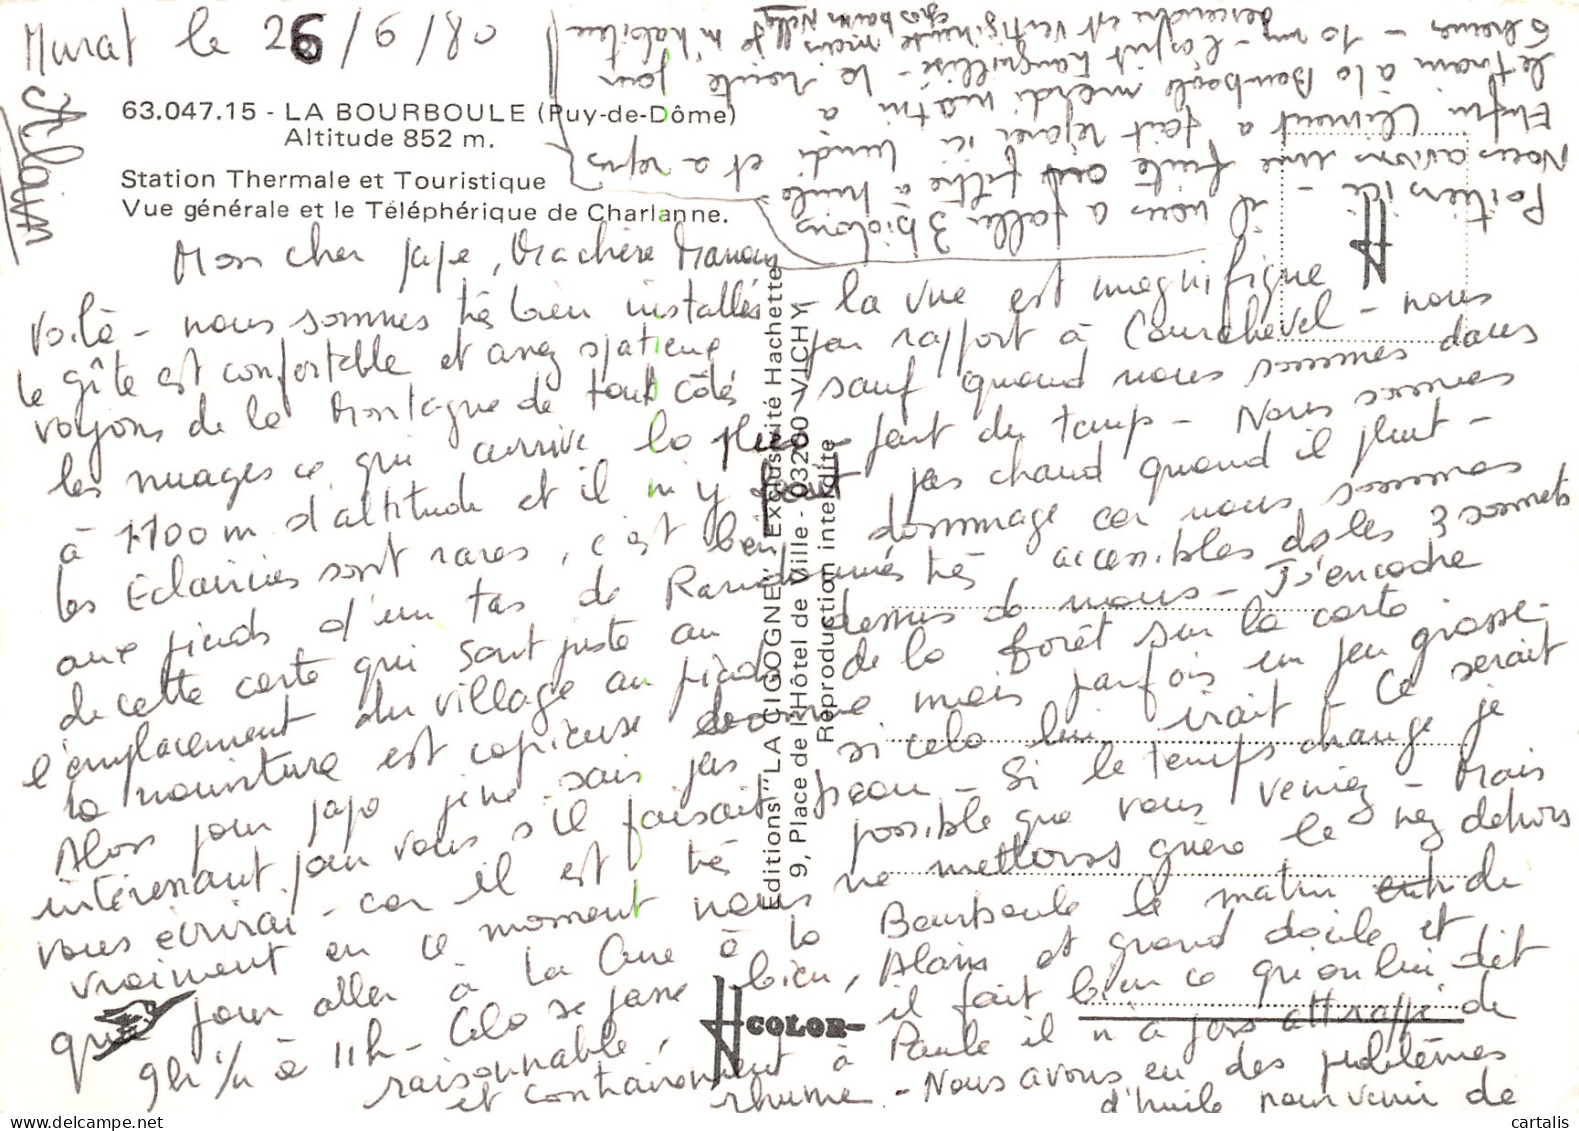 Murat le 26/6/80
Alain
63.047.15 - LA BOURBOULE (Puy-de-Dôme)
Altitude 852 m.
Station Thermale et Touristique
Vue générale et le Téléphérique de Charlanne.
Mon cher Jape, Ma chère Maman
Voilà - nous sommes très bien installés - la vue est magnifique
le gîte est confortable et assez spatieux par rapport à Courchevel - nous
voyons de la Montagne de tout côtés sauf quand nous sommes dans
les nuages ce qui arrive la plus part du temps - Nous sommes
à 1100 m d'altitude et il n'y fait pas chaud quand il pleut -
les Eclaircies sont rares, c'est bien dommage car nous sommes
aux pieds d'un tas de Randonnées très accessibles ds les 2 sommets
de cette carte qui sont juste au dessus de nous - J's'encoche
l'emplacement du village au pied de la forêt sur la carte
la nourriture est copieuse bonne mais parfois un peu grasse -
Alors pour papa je ne sais pas si cela lui irait - Ce serait
intéressant pour vous s'il faisait beau - Si le temps change je
vous écrirai - car il est très possible que vous veniez - Mais
vraiment en ce moment nous ne mettons guère le nez dehors
que pour aller à la Cure à la Bourboule le matin de
9h 1/2 à 11h - Cela se passe bien, Alain est grand docile et
raisonnable, il fait bien ce qu'on lui dit
et contrairement à Paule il n'a pas attrappé de
rhume - Nous avons eu des problèmes
d'huile pour venir de
Poitiers ici - il nous a fallu 3 bidons
Nous avions une fuite au filtre à huile
Enfin Clément a fait réparer ici lundi et a repris
le train à la Bourboule mardi matin à
6 heures - 10 mn - l'esprit tranquillisé - la route pour
descendre est vertigineuse mais je m'habitue
gros baisers Nelly
Editions "LA CIGOGNE" Exclusivité Hachette
9, Place de l'Hôtel de Ville - 03200 VICHY
Reproduction interdite
COLOR
cartalis